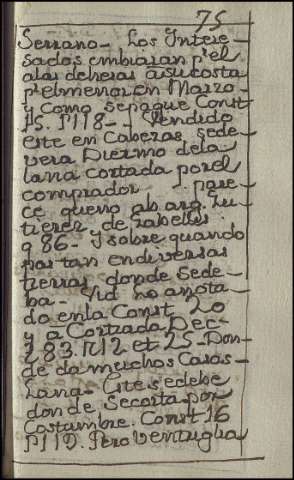 75
Serrano - Los Intere-
sados embiaran p'el
alas deheras a su costa
p'elmenor en Marzo
y como sepague Const
15. P118 - - Vendido
este en Cabezas sede-
vera Diezmo dela
lana cortada porel
comprador pare-
ce queno ab. arg.
tierez de rabellis
q 86 - y sobre quando
pastan endiversas
tierras donde sede-
ba - Vid lo anota-
do enla Const. 20
y a Cortzada Dec-
283. n12 et 25 - Don-
de da muchos Casos
Lana. Este sedebe
donde Secorta por
Costumbre. Const 16
P110. Pero Ventuglia